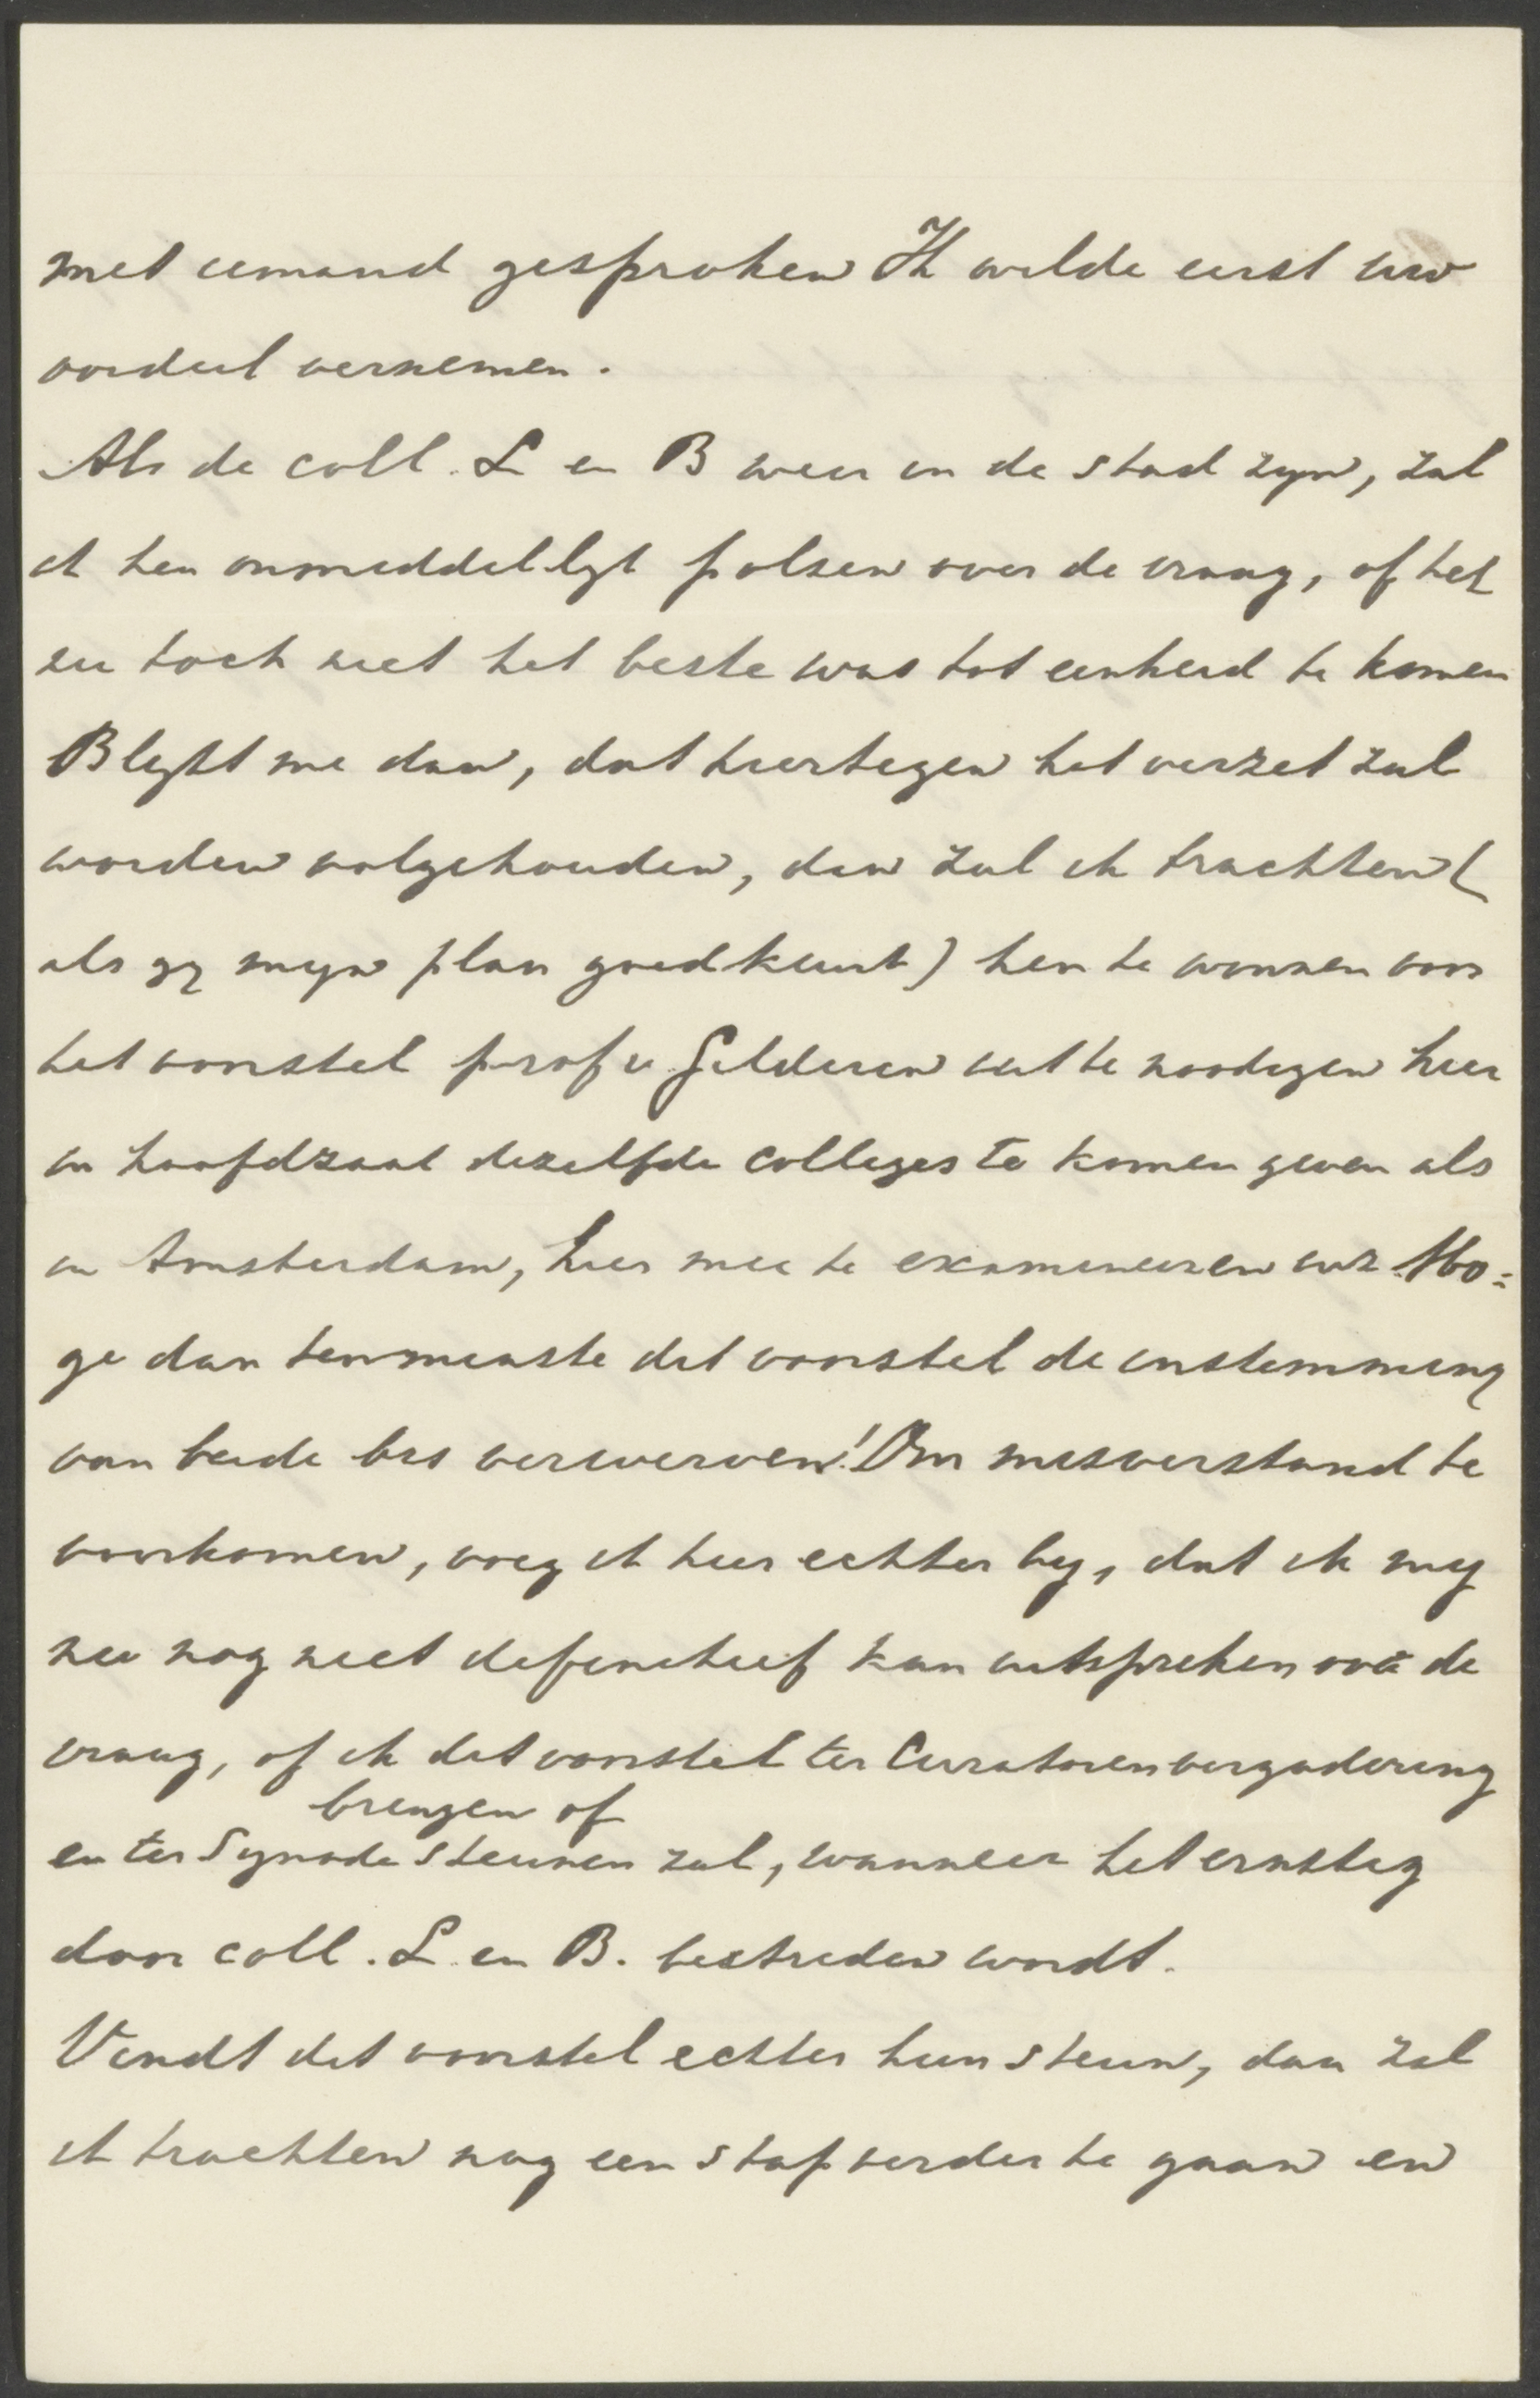 met iemand gesproken Ik wilde eerst uw
oordeel vernemen.
Als de coll. L en B weer in de stad zijn, zal
ik hen onmiddellijk polsen over de vraag, of het
nu toch niet het beste was tot eenheid te komen
Blijkt me dan, dat hiertegen het verzet zal
worden volgehouden, dan zal ik trachten (
als gij mijn plan goedkeurt) hen te winnen voor
het voorstel prof v. Gelderen uit te noodigen hier
in hoofdzaak dezelfde colleges te komen geven als
in Amsterdam, hier mee te examineeren enz. Mo=
ge dan tenminste dit voorstel de instemming
van beide brs verwerven! Om misverstand te
voorkomen, voeg ik hier echter bij, dat ik mij
nu nog niet definitief kan uitspreken over de
vraag, of ik dit voorstel ter Curatorenvergadering
brengen of
en ter Synode steunen zal, wanneer het ernstig
door coll. L. en B. bestreden wordt.
Vindt dit voorstel echter hun steun, dan zal
ik trachten nog een stap verder te gaan en